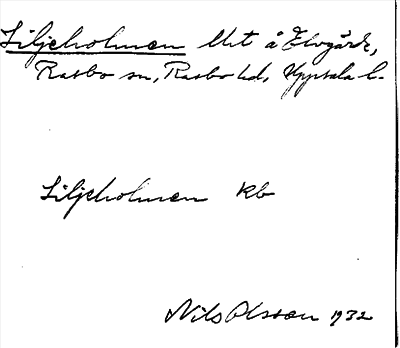 Liljeholmen Utt å Elvgärde,
Rasbo sn, Rasbo hd, Uppsala l.
Liljeholmen kb
Nils Olsson 1932